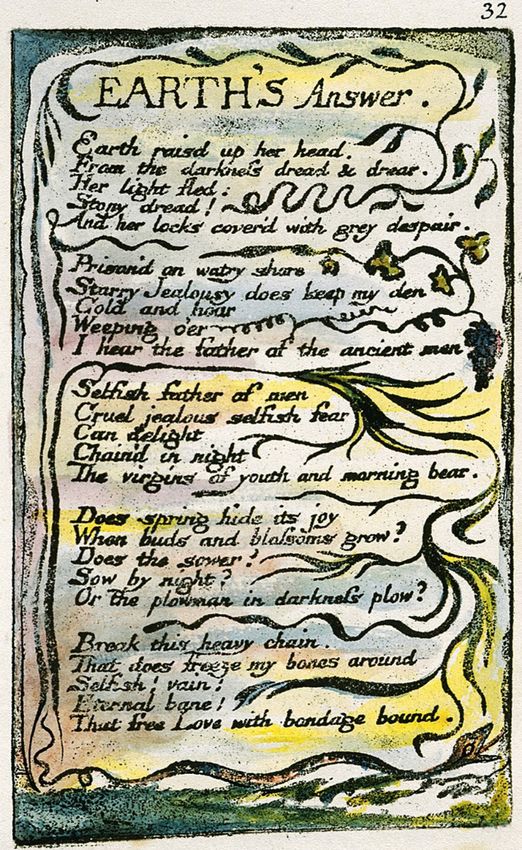 32
EARTH'S Answer.
Earth raisd up her head.
From the darkness dread & drear.
Her light fled:
Stony dread!
And her locks cover'd with grey despair.
Prison'd on watry shore
Starry Jealousy does keep my den
Cold and hoar
Weeping o'er
I hear the father of the ancient men
Selfish father of men
Cruel jealous selfish fear
Can delight
Chain'd in night
The virgins of youth and morning bear.
Does spring hide its joy
When buds and blossoms grow?
Does the sower?
Sow by night?
Or the plowman in darkness plow?
Break this heavy chain.
That does freeze my bones around
Selfish! vain!
Eternal bane!
That free Love with bondage bound.